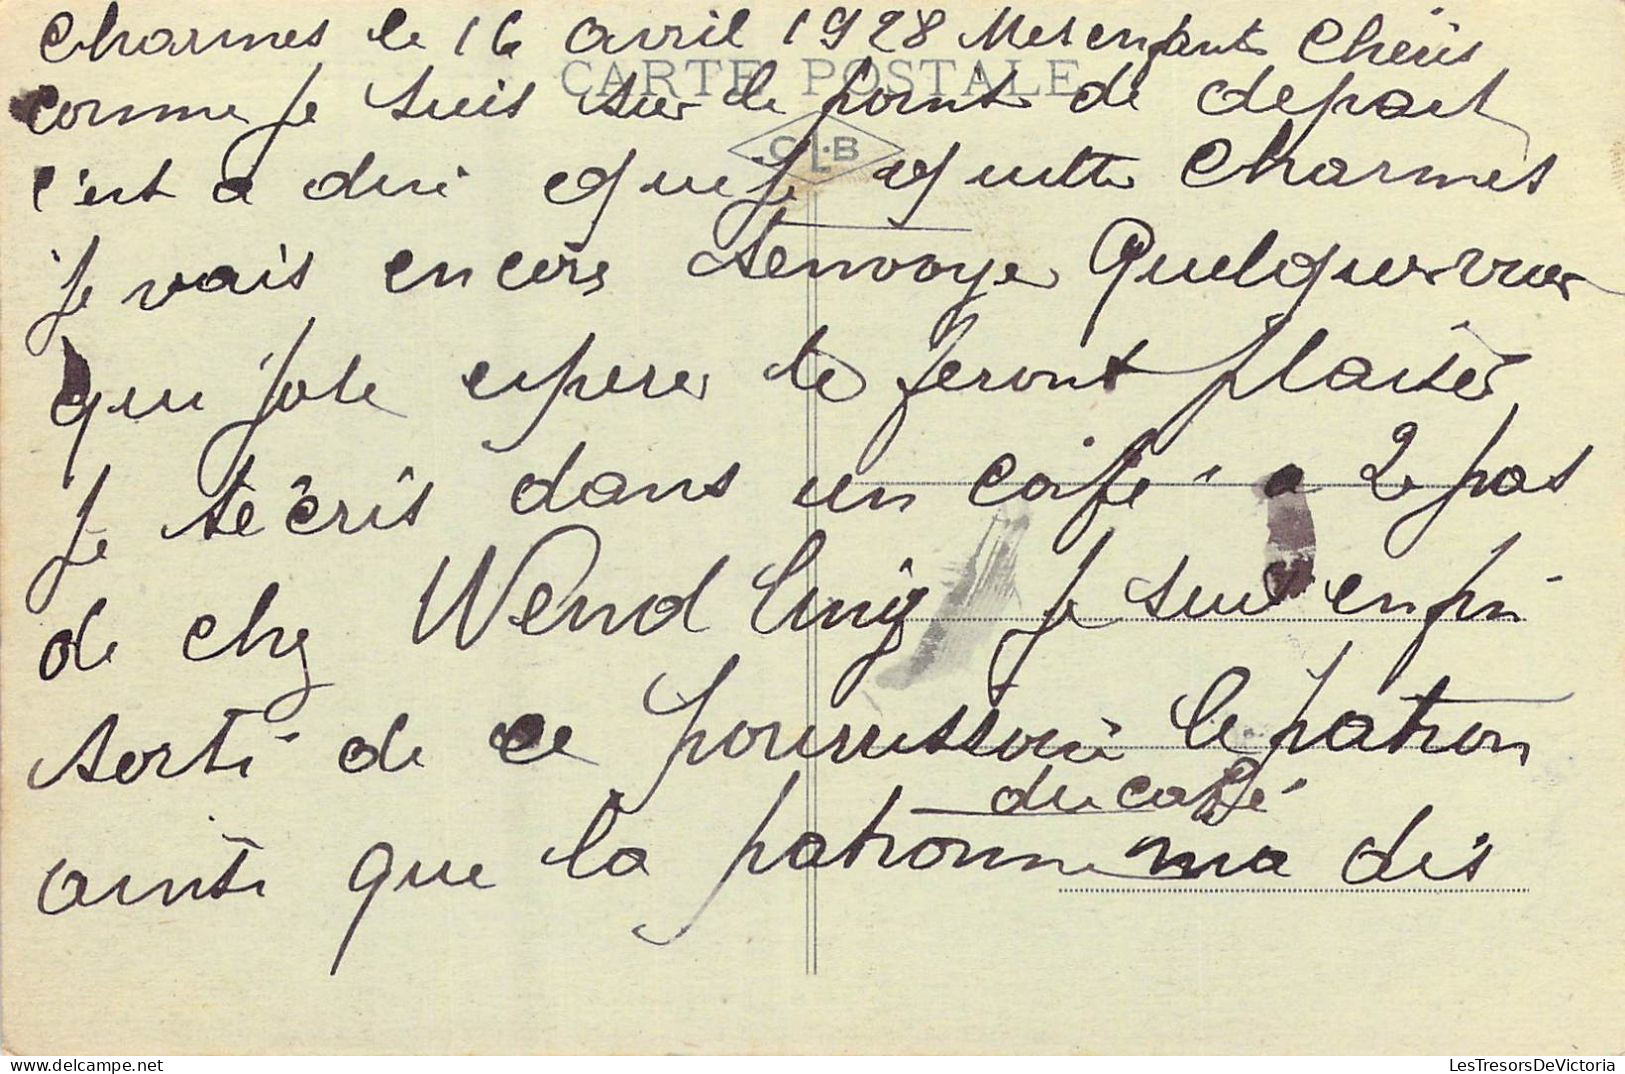 Charmes le 16 avril 1928 Mes enfants Chéris
CARTE POSTALE
comme je suis sur le point de depart
C·L·B
c'est a dire que je quitte Charmes
je vais encore t'envoyer Quelques vues
qui j'ose esperer te feront plaisir
Je t'écris dans un café a 2 pas
de chez Wendling je suis enfin
sorti de ce pourrissoir le patron
du café
ainsi que la patronne ma dis
LesTresorsDeVictoria